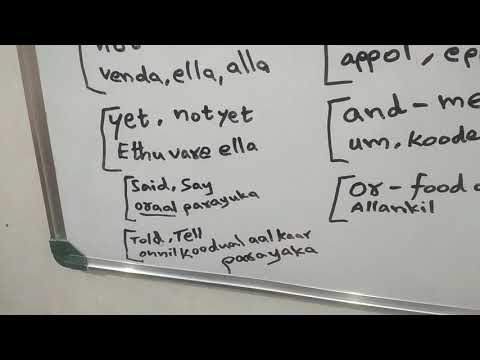 venda, ella, alla
yet, not yet
Ethuvare ella
Said, Say
oraal parayuka
Told, Tell
onnil koodual aalkaar
parayaka
appol,
and-
um, koode
Or-food
Allankil